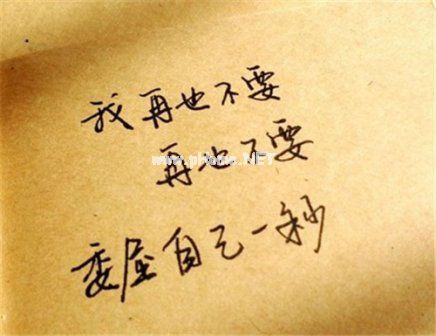 我再也不要
再也不要
委屈自己一秒